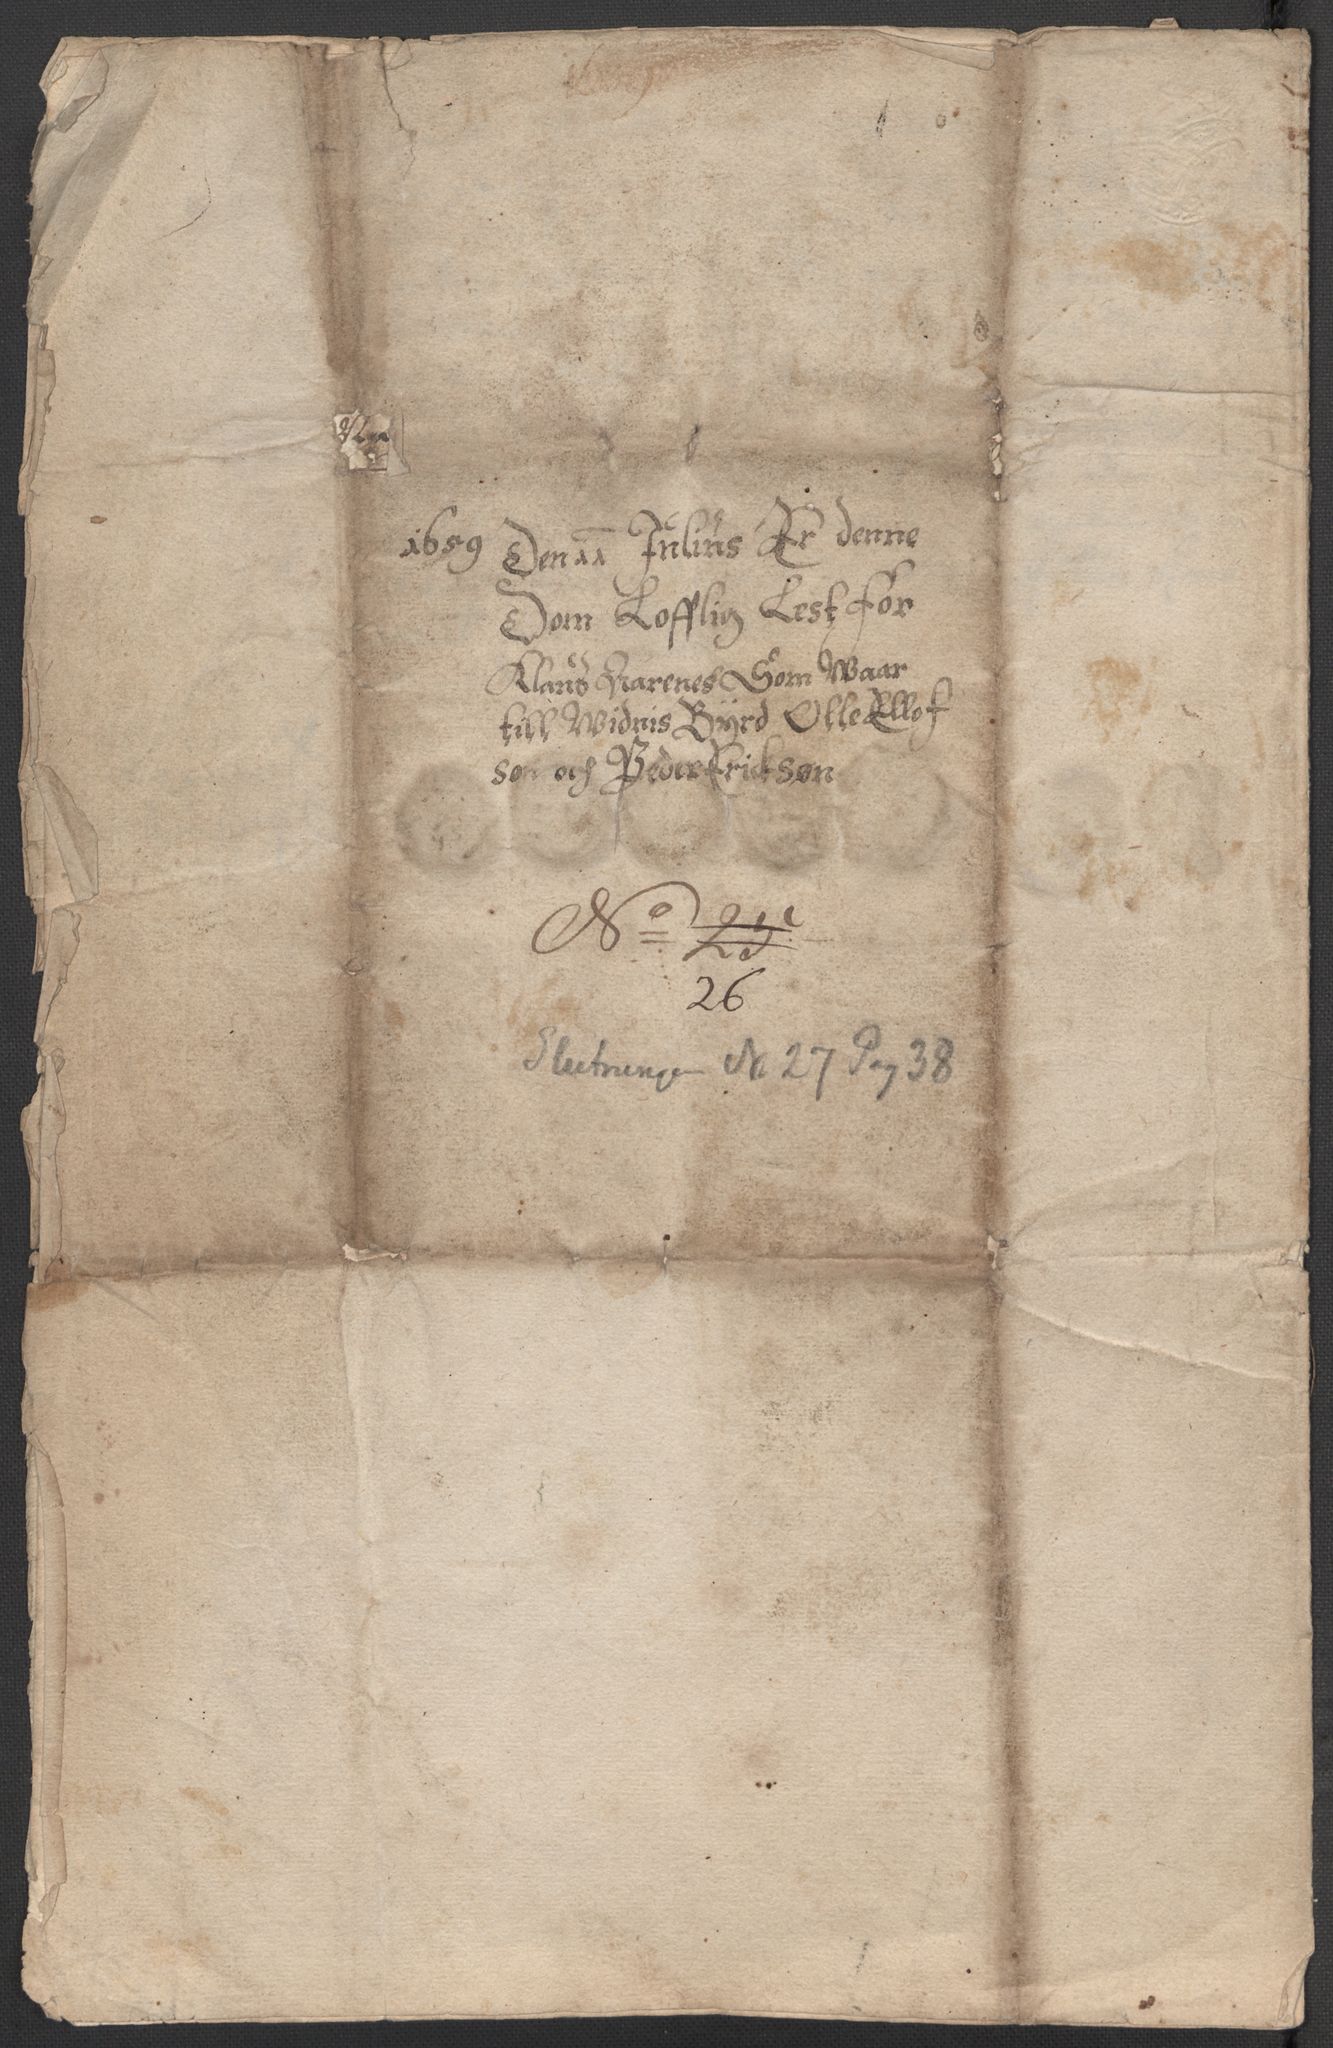 1659 Den 11 Julius Er denne
Dom Lofflig Lest for
Klaus Narenes Som Waar
till Widnis Byrd Olle Ellof
son och Peder Erickson
No 25
26
No 27 Pag 38